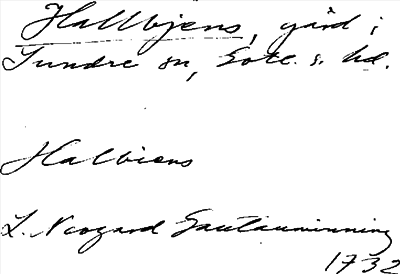 Hallbjens, gård i
Sundre sn, Gotl. s. hd.
Halbiens
L. Neogard Gautauminning
1732